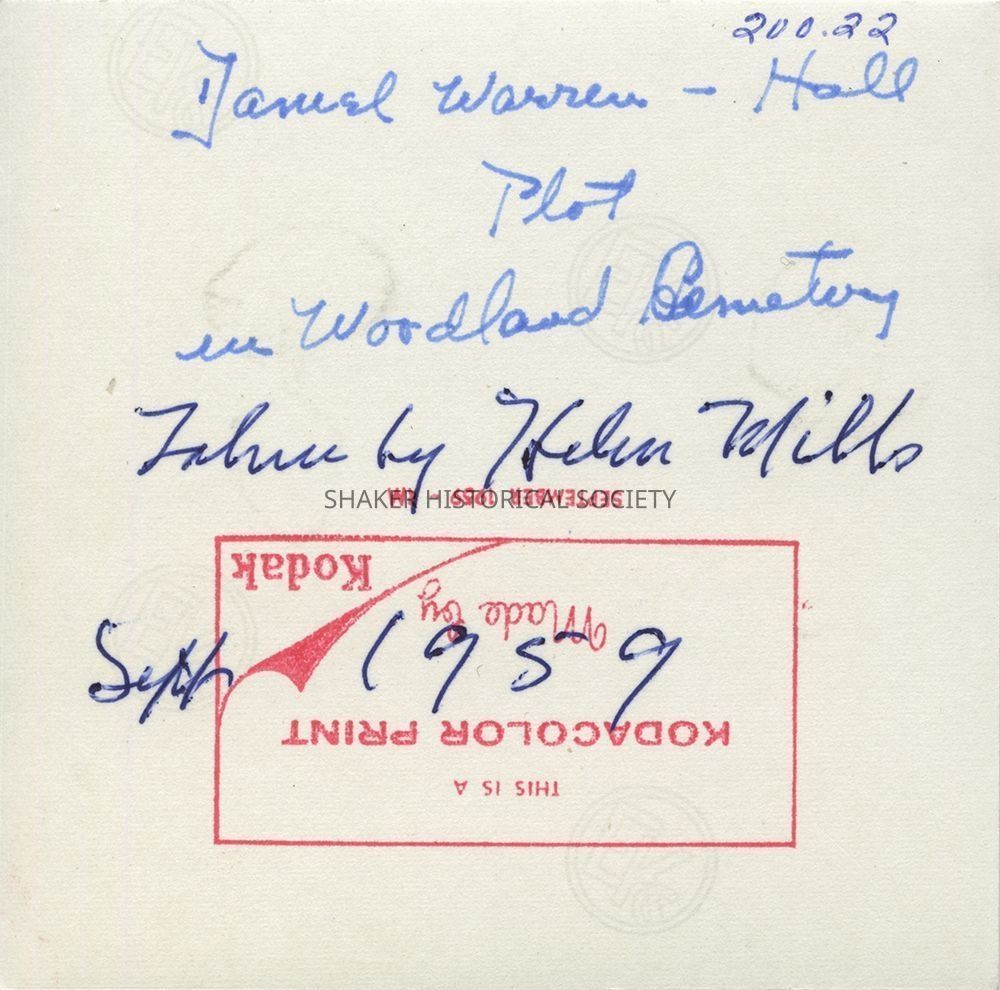 200.22
Daniel Warren - Hall
Plot
in Woodland Cemetery
Taken by Helen Mills
SHAKER HISTORICAL SOCIETY
SEPTEMBER 1959 -
Sept 1959
THIS IS A
KODACOLOR PRINT
Made by
Kodak